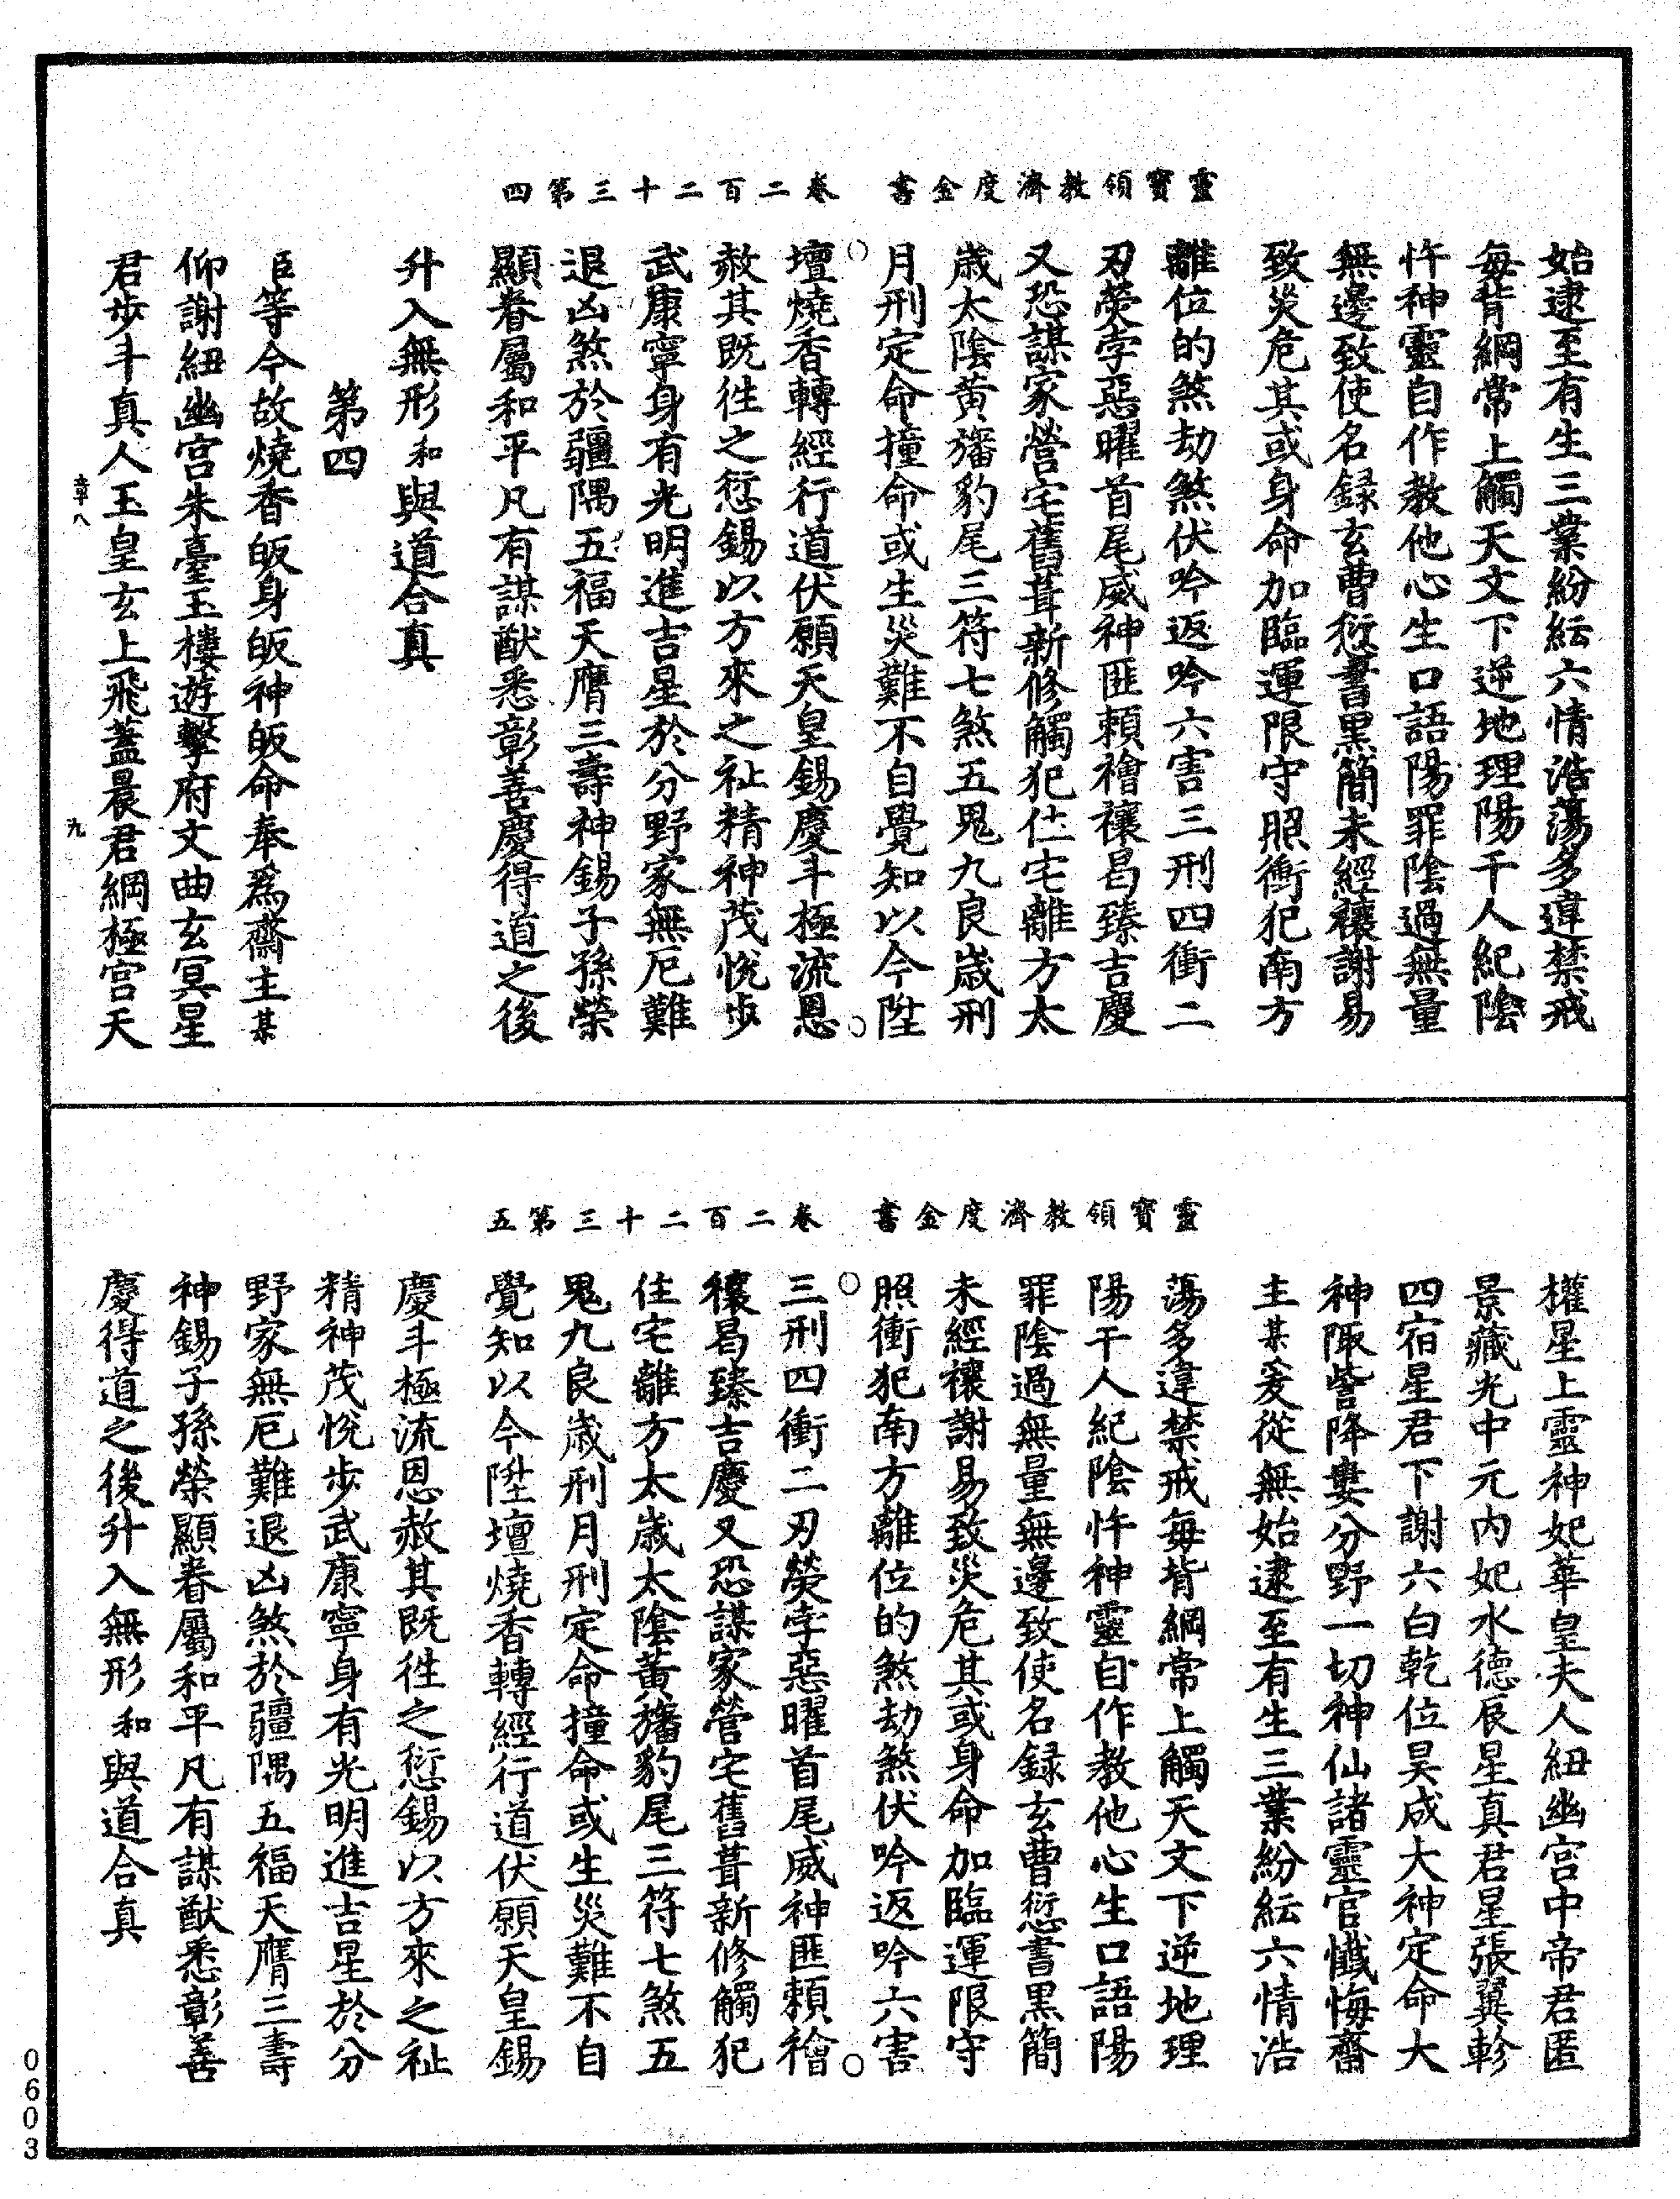 靈寶領教濟度金書　卷二百二十三第四
始逮至有生三業紛紜六情浩蕩多違禁戒
每背綱常上觸天文下逆地理陽干人紀陰
忤神靈自作教他心生口語陽罪陰過無量
無邊致使名録玄曹愆書黑簡未經禳謝易
致災危其或身命加臨運限守照衝犯南方
離位的煞劫煞伏吟返吟六害三刑四衝二
刃熒孛惡曜首尾威神匪頼禬禳曷臻吉慶
又恐謀家營宅舊葺新修觸犯住宅離方太
歳太陰黄旛豹尾三符七煞五鬼九良歳刑
月刑定命撞命或生災難不自覺知以今陞
壇燒香轉經行道伏願天皇錫慶斗極流恩
赦其既徃之愆錫以方來之祉精神茂悅步
武康寧身有光明進吉星於分野家無厄難
退凶煞於疆隅五福天膺三壽神錫子孫榮
顯眷屬和平凡有謀猷悉彰善慶得道之後
升入無形和與道合真
第四
臣等今故燒香皈身皈神皈命奉爲齋主某
仰謝紐幽宫朱臺玉樓遊擊府文曲玄冥星
君步斗真人玉皇玄上飛蓋晨君綱極宫天
章八
九
靈寶領教濟度金書　卷二百二十三第五
權星上靈神妃華皇夫人紐幽宫中帝君匿
景藏光中元内妃水德辰星真君星張翼軫
四宿星君下謝六白乾位昊成大神定命大
神陬訾降婁分野一切神仙諸靈官懺悔齋
主某爰從無始逮至有生三業紛紜六情浩
蕩多違禁戒每背綱常上觸天文下逆地理
陽干人紀陰忤神靈自作教他心生口語陽
罪陰過無量無邊致使名録玄曹愆書黑簡
未經禳謝易致災危其或身命加臨運限守
照衝犯南方離位的煞劫煞伏吟返吟六害
三刑四衝二刃熒孛惡曜首尾威神匪頼禬
禳曷臻吉慶又恐謀家營宅舊葺新修觸犯
住宅離方太歳太陰黄旛豹尾三符七煞五
鬼九良歳刑月刑定命撞命或生災難不自
覺知以今陞壇燒香轉經行道伏願天皇錫
慶斗極流恩赦其既徃之愆錫以方來之祉
精神茂悅步武康寧身有光明進吉星於分
野家無厄難退凶煞於疆隅五福天膺三壽
神錫子孫榮顯眷屬和平凡有謀猷悉彰善
慶得道之後升入無形和與道合真
0603